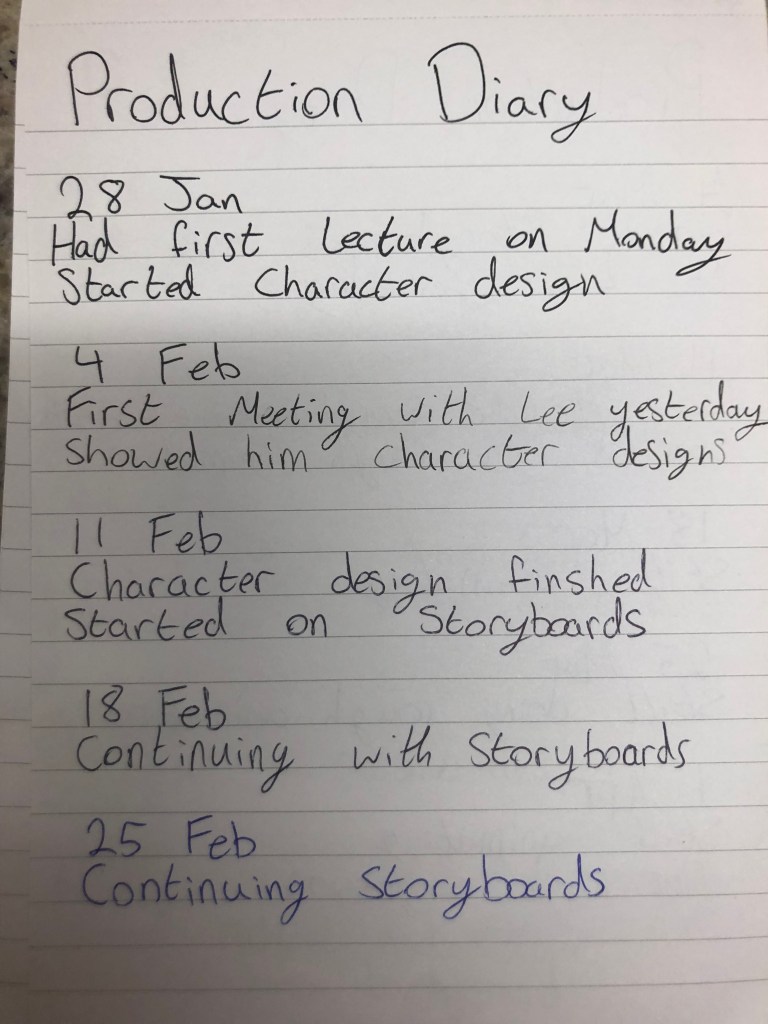 Production Diary
28 Jan
Had first lecture on Monday
Started Character design
4 Feb
First Meeting with Lee yesterday
Showed him character designs
11 Feb
Character design finshed
Started on Storyboards
18 Feb
Continuing with Storyboards
25 Feb
Continuing Storyboards